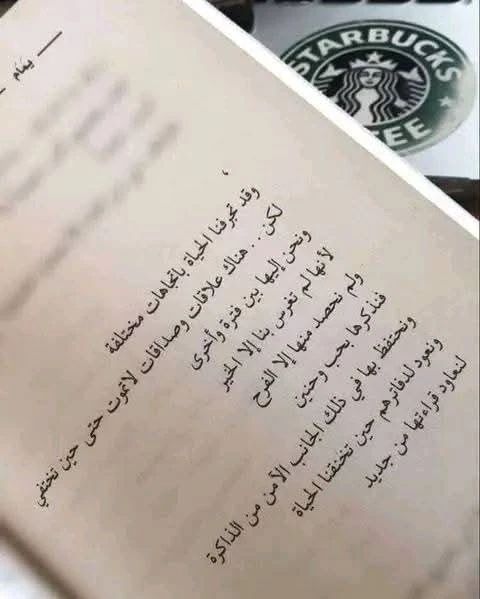 يمام
،
وقد تجرفنا الحياة باتجاهات مختلفة
لكن.. هناك علاقات وصداقات لا تموت حتى حين تختفي
ونحن إليها بين فترة وأخرى
لأنها لم تغرس بنا إلا الخير
ولم نحصد منها إلا الفرح
فنذكرها بحب وحنين
ونحتفظ بها في ذلك الجانب الآمن من الذاكرة
ونعود لدفاترهم حين تخنقنا الحياة
لنعاود قراءتها من جديد
STARBUCKS